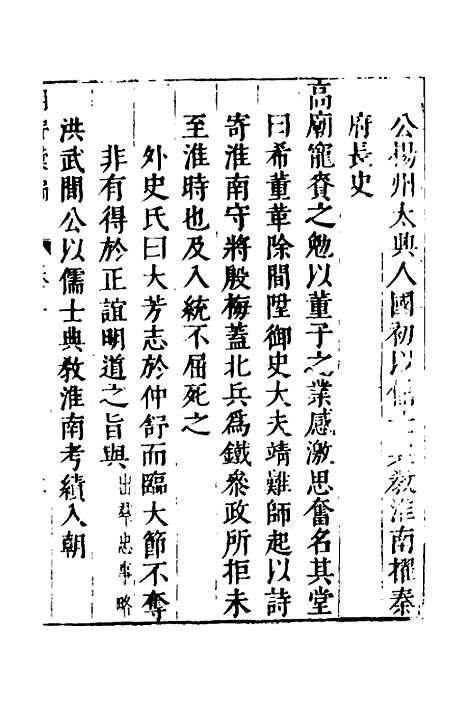 公揚州太興人國初以儒士典教淮南擢秦
府長史
高廟寵賚之勉以董子之業感激思奮名其堂
曰希董革除間陞御史大夫靖難師起以詩
寄淮南守將殷梅蓋北兵為鐵參政所拒未
至淮時也及入統不屈死之
外史氏曰大芳志於仲舒而臨大節不奪
非有得於正誼明道之旨與 出羣忠事略
洪武間公以儒士典教淮南考績入朝